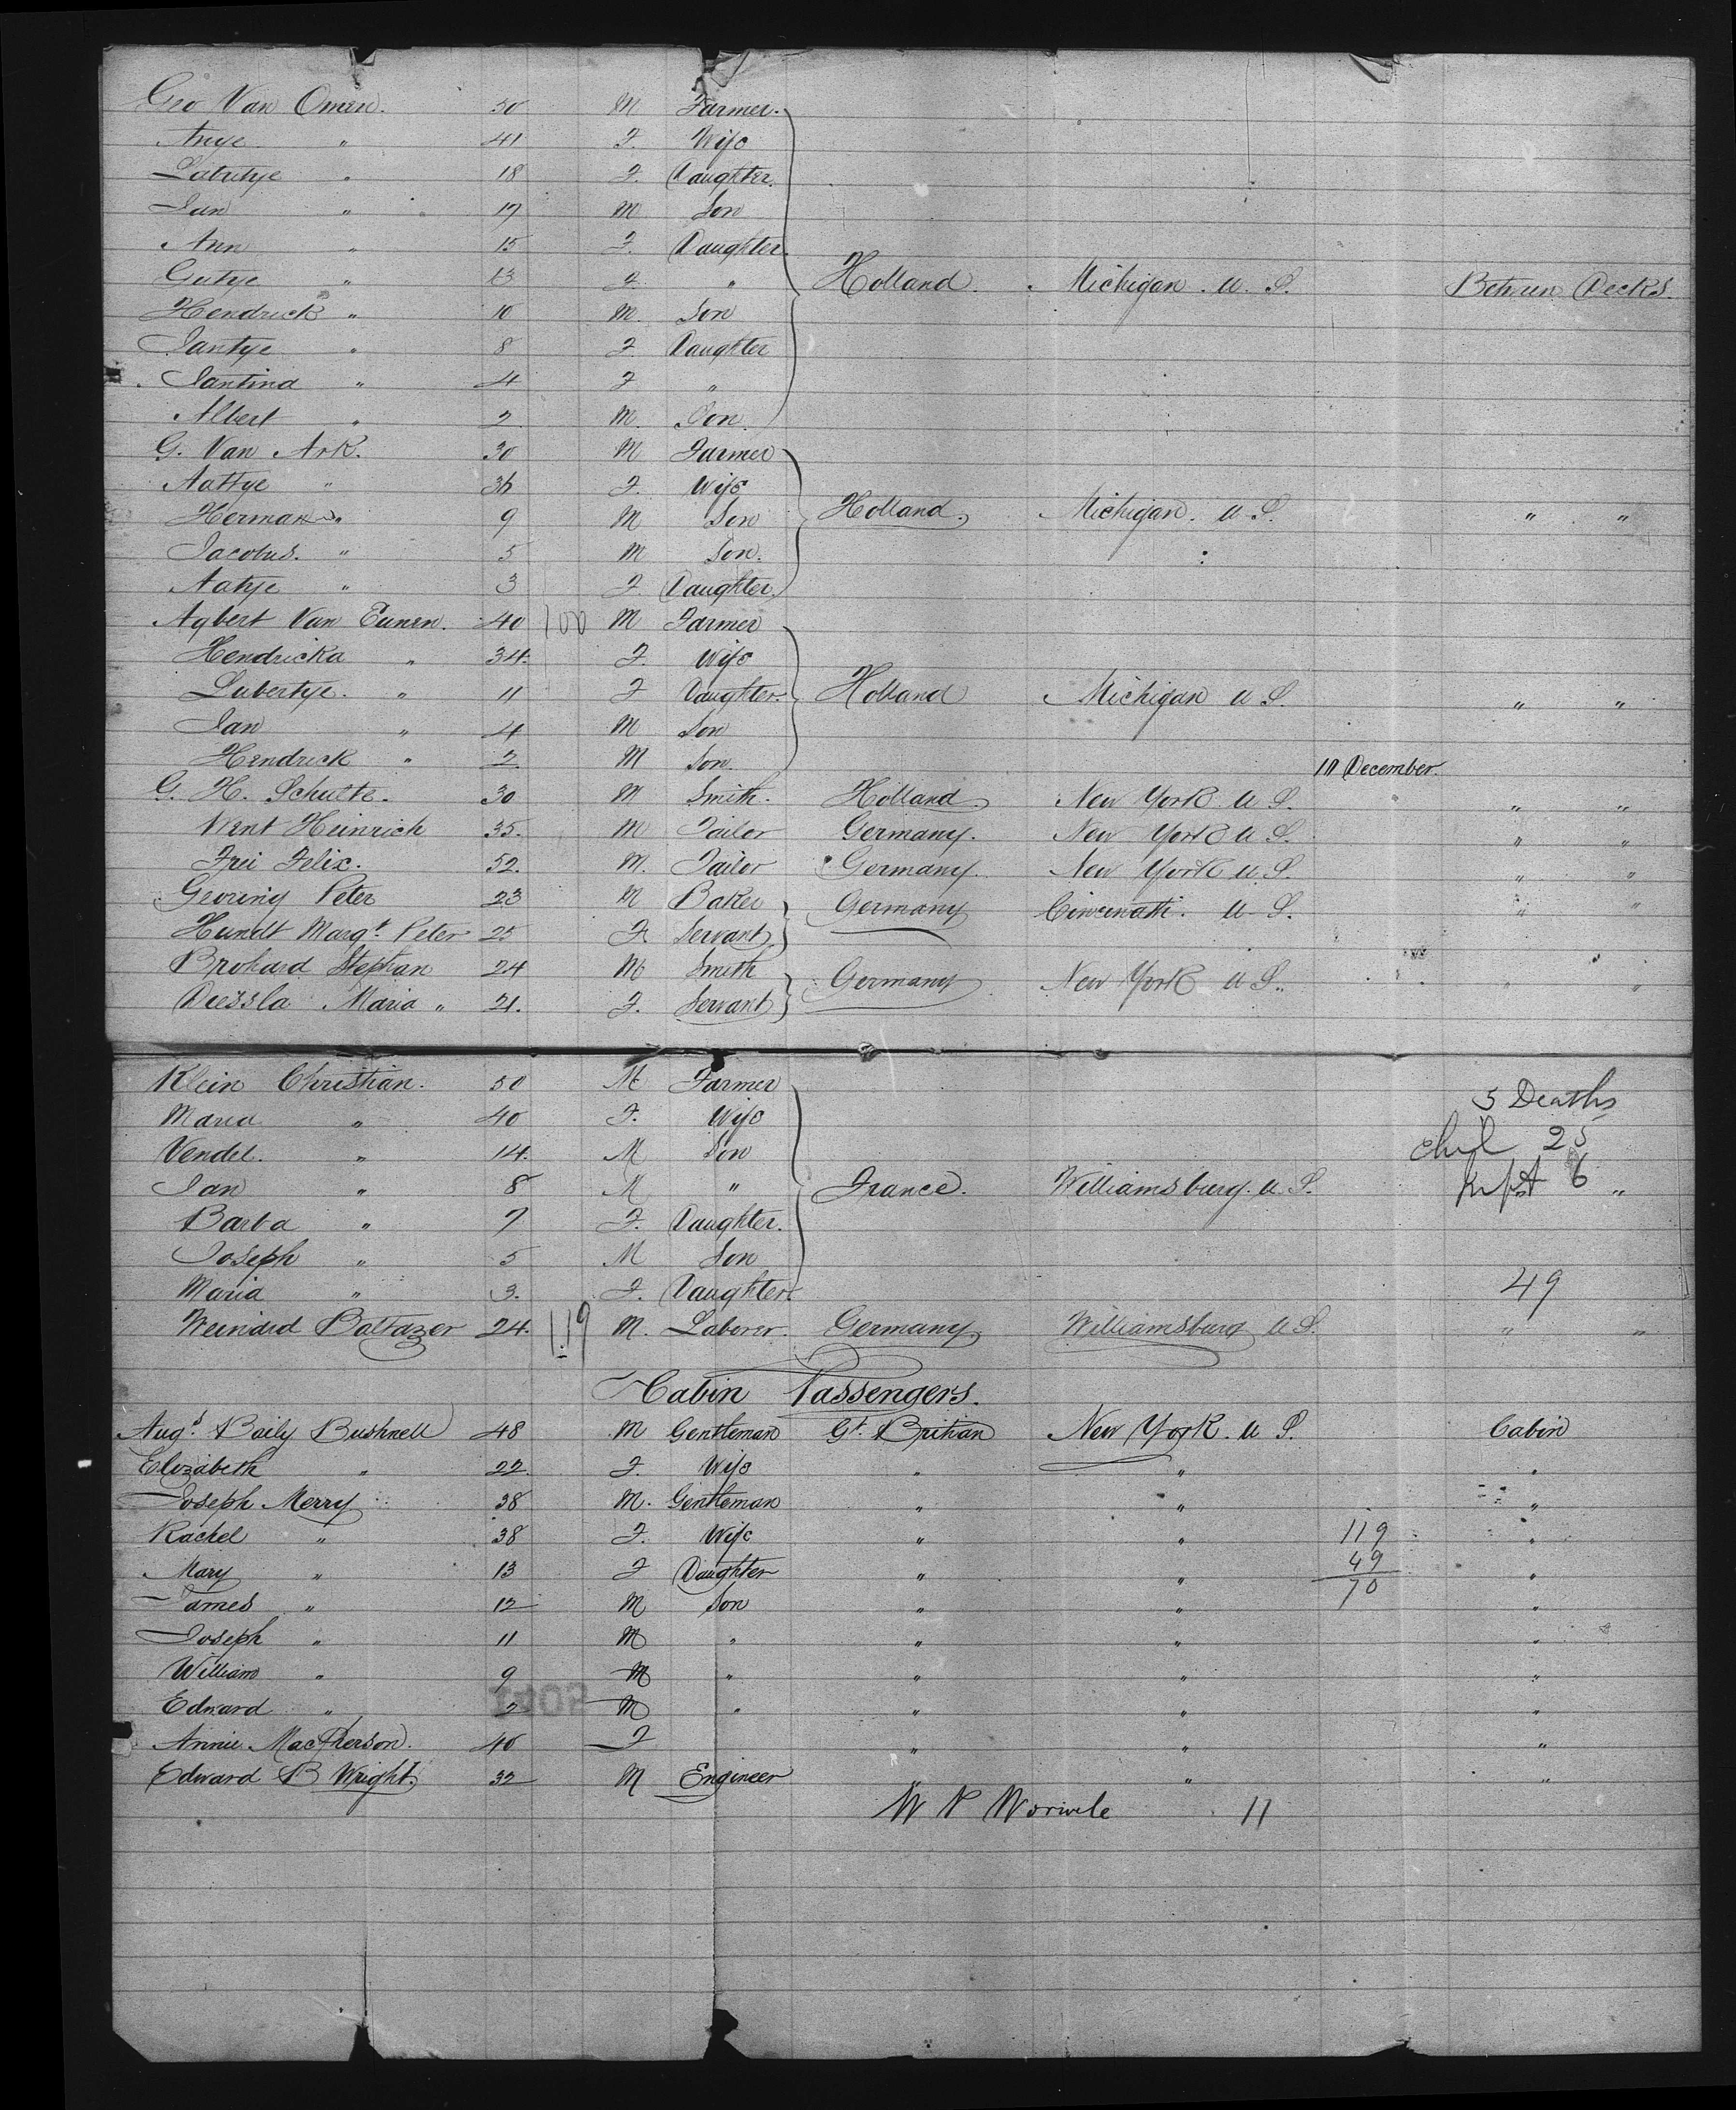 Geo Van Omen. 50 M Farmer.
Anye " 41 F. Wife
Lubutye " 18 F. Daughter.
Jan " 17 M Son
Ann " 15 F. Daughter.
Gutye " 13 F. " Holland. Michigan. U. S. Between Decks.
Hendrick " 10 M. Son
Jantye " 8 F. Daughter
Jantina " 4 F "
Albert " 2 M. Son.
G. Van Ark. 30 M Farmer
Aattye " 36 F. Wife
Herman " 9 M Son Holland. Michigan. U S. " "
Jacobus. " 5 M Son.
Aatye " 3 F. Daughter.
Agbert Van Eunen. 40 100 M Farmer
Hendricka " 34. F. Wife
Lubertye. " 11 F Daughter. Holland Michigan U S. " "
Jan " 4 M Son
Hendrick " 2 M Son. 10 December.
G. H. Schutte. 30 M Smith. Holland. New York U S. " "
Went Heinrich 35. M Tailor Germany. New York U S. " "
Frei Felix. 52. M. Tailor Germany. New York U S. " "
Georing Peter 23 M Baker Germany Cincinnati. U S. " "
Hundt Margt. Peter 25 F. Servant
Brohard Stephan 24 M Smith Germany New York U S. " "
Maria " 21. F. Servant
Klein Christian. 50 M Farmer
Maria " 40 F. Wife 5 Deaths
Vendel. " 14. M Son chil 25
Jan " 8 M " France. Williamsburg. U. S. 6 "
Barba " 7 F. Daughter.
Joseph " 5 M Son
Maria " 3. F. Daughter. 49
Weinard Baltazer 24. 119 M. Laborer. Germany Williamsburg U S. " "
Cabin Passengers.
Augs. Baily Bushnell 48 M Gentleman Gt. Britian New York. U S. Cabin
Elizabeth " 22. F. Wife " " "
Joseph Merry 38 M. Gentleman " " "
Rachel " 38 F. Wife " " 119 "
Mary " 13 F Daughter " " 49 "
70
James " 12 M Son " " "
Joseph " 11 M " " " "
William " 9 M " " " "
Edward " 2 M " " " "
Annie MacPherson. 40 F " " "
Edward B Wright. 32 M Engineer " " "
W P 11